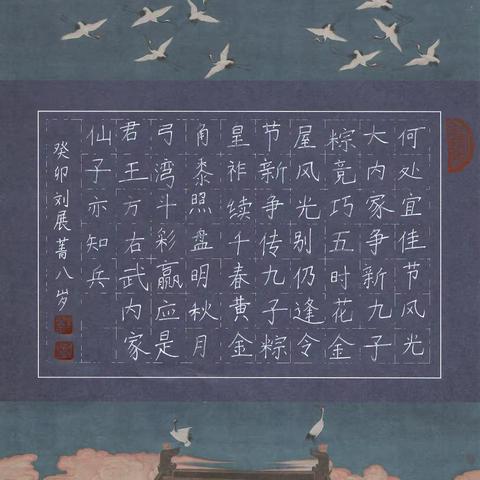 何处宜佳节风光
大内家争新九子
粽竞巧五时花金
屋风光别仍逢令
节新争传九子粽
皇祚续千春黄金
角黍照盘明秋月
弓湾斗彩赢应是
君王方右武内家
仙子亦知兵
癸卯刘展菁八岁